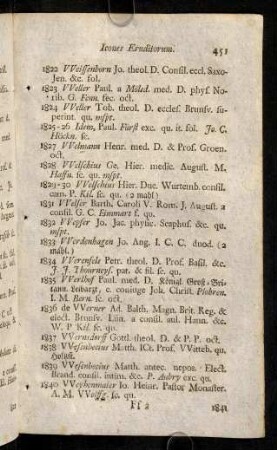 Icones Eruditorum. 451
1822 VVeissenborn Jo. theol. D. Consil. eccl. Saxo-
Jen. &c. fol.
1823 VVeller Paul. a Molsd. med. D. phys. No-
rib. G. Fenn. sec. oct.
1824 VVeller Tob. theol. D. eccles. Brunsv. su-
perint. qu. mspt.
1825-26 Idem, Paul. Fürst exc. qu. it. fol. Jo. C.
Höckn. sc.
1827 VVelmann Henr. med. D. & Prof. Groen.
oct.
1828 VVelschius Ge. Hier. medic. August. M.
Haffn. sc. qu. mspt.
1829-30 VVelschius Hier. Duc. Wurtemb. consil.
cam. P. Kil. sc. qu. (2 mahl)
1831 VVelser Barth. Caroli V. Rom. J. August. a
consil. G. C. Eimmart s. qu.
1832 VVepfer Jo. Jac. physic. Scaphus. &c. qu.
mspt.
1833 VVerdenhagen Jo. Ang. I. C. C. duod. (2
mahl.)
1834 VVerenfels Petr. theol. D. Prof. Basil. &c.
J. J. Thourneys. pat. & fil. sc. qu.
1835 VVerlhof Paul. med. D. Königl. Groß-Bri-
tann. Leibarzt, c. conjuge Joh. Christ. Plebren.
I. M. Bern. sc. oct.
1836 de VVerner Ad. Balth. Magn. Brit. Reg. &
elect. Brunsv. Lün. a consil. aul. Hann. &c.
W. P. Kil. sc. qu.
1837 VVernsdorff Gottl. theol. D. & P. P. oct.
1838 VVesenbecius Matth. ICt. Prof. VVitteb. qu.
Holzst.
1839 VVesenbecius Matth. antec. nepos Elect.
Brand. consil. intim. &c. P. Aubry exc. qu.
1840 VVeyhenmaier Jo. Heinr. Pastor Monaster.
A. M. VVolfg. sc. qu.
Ff 2 1841